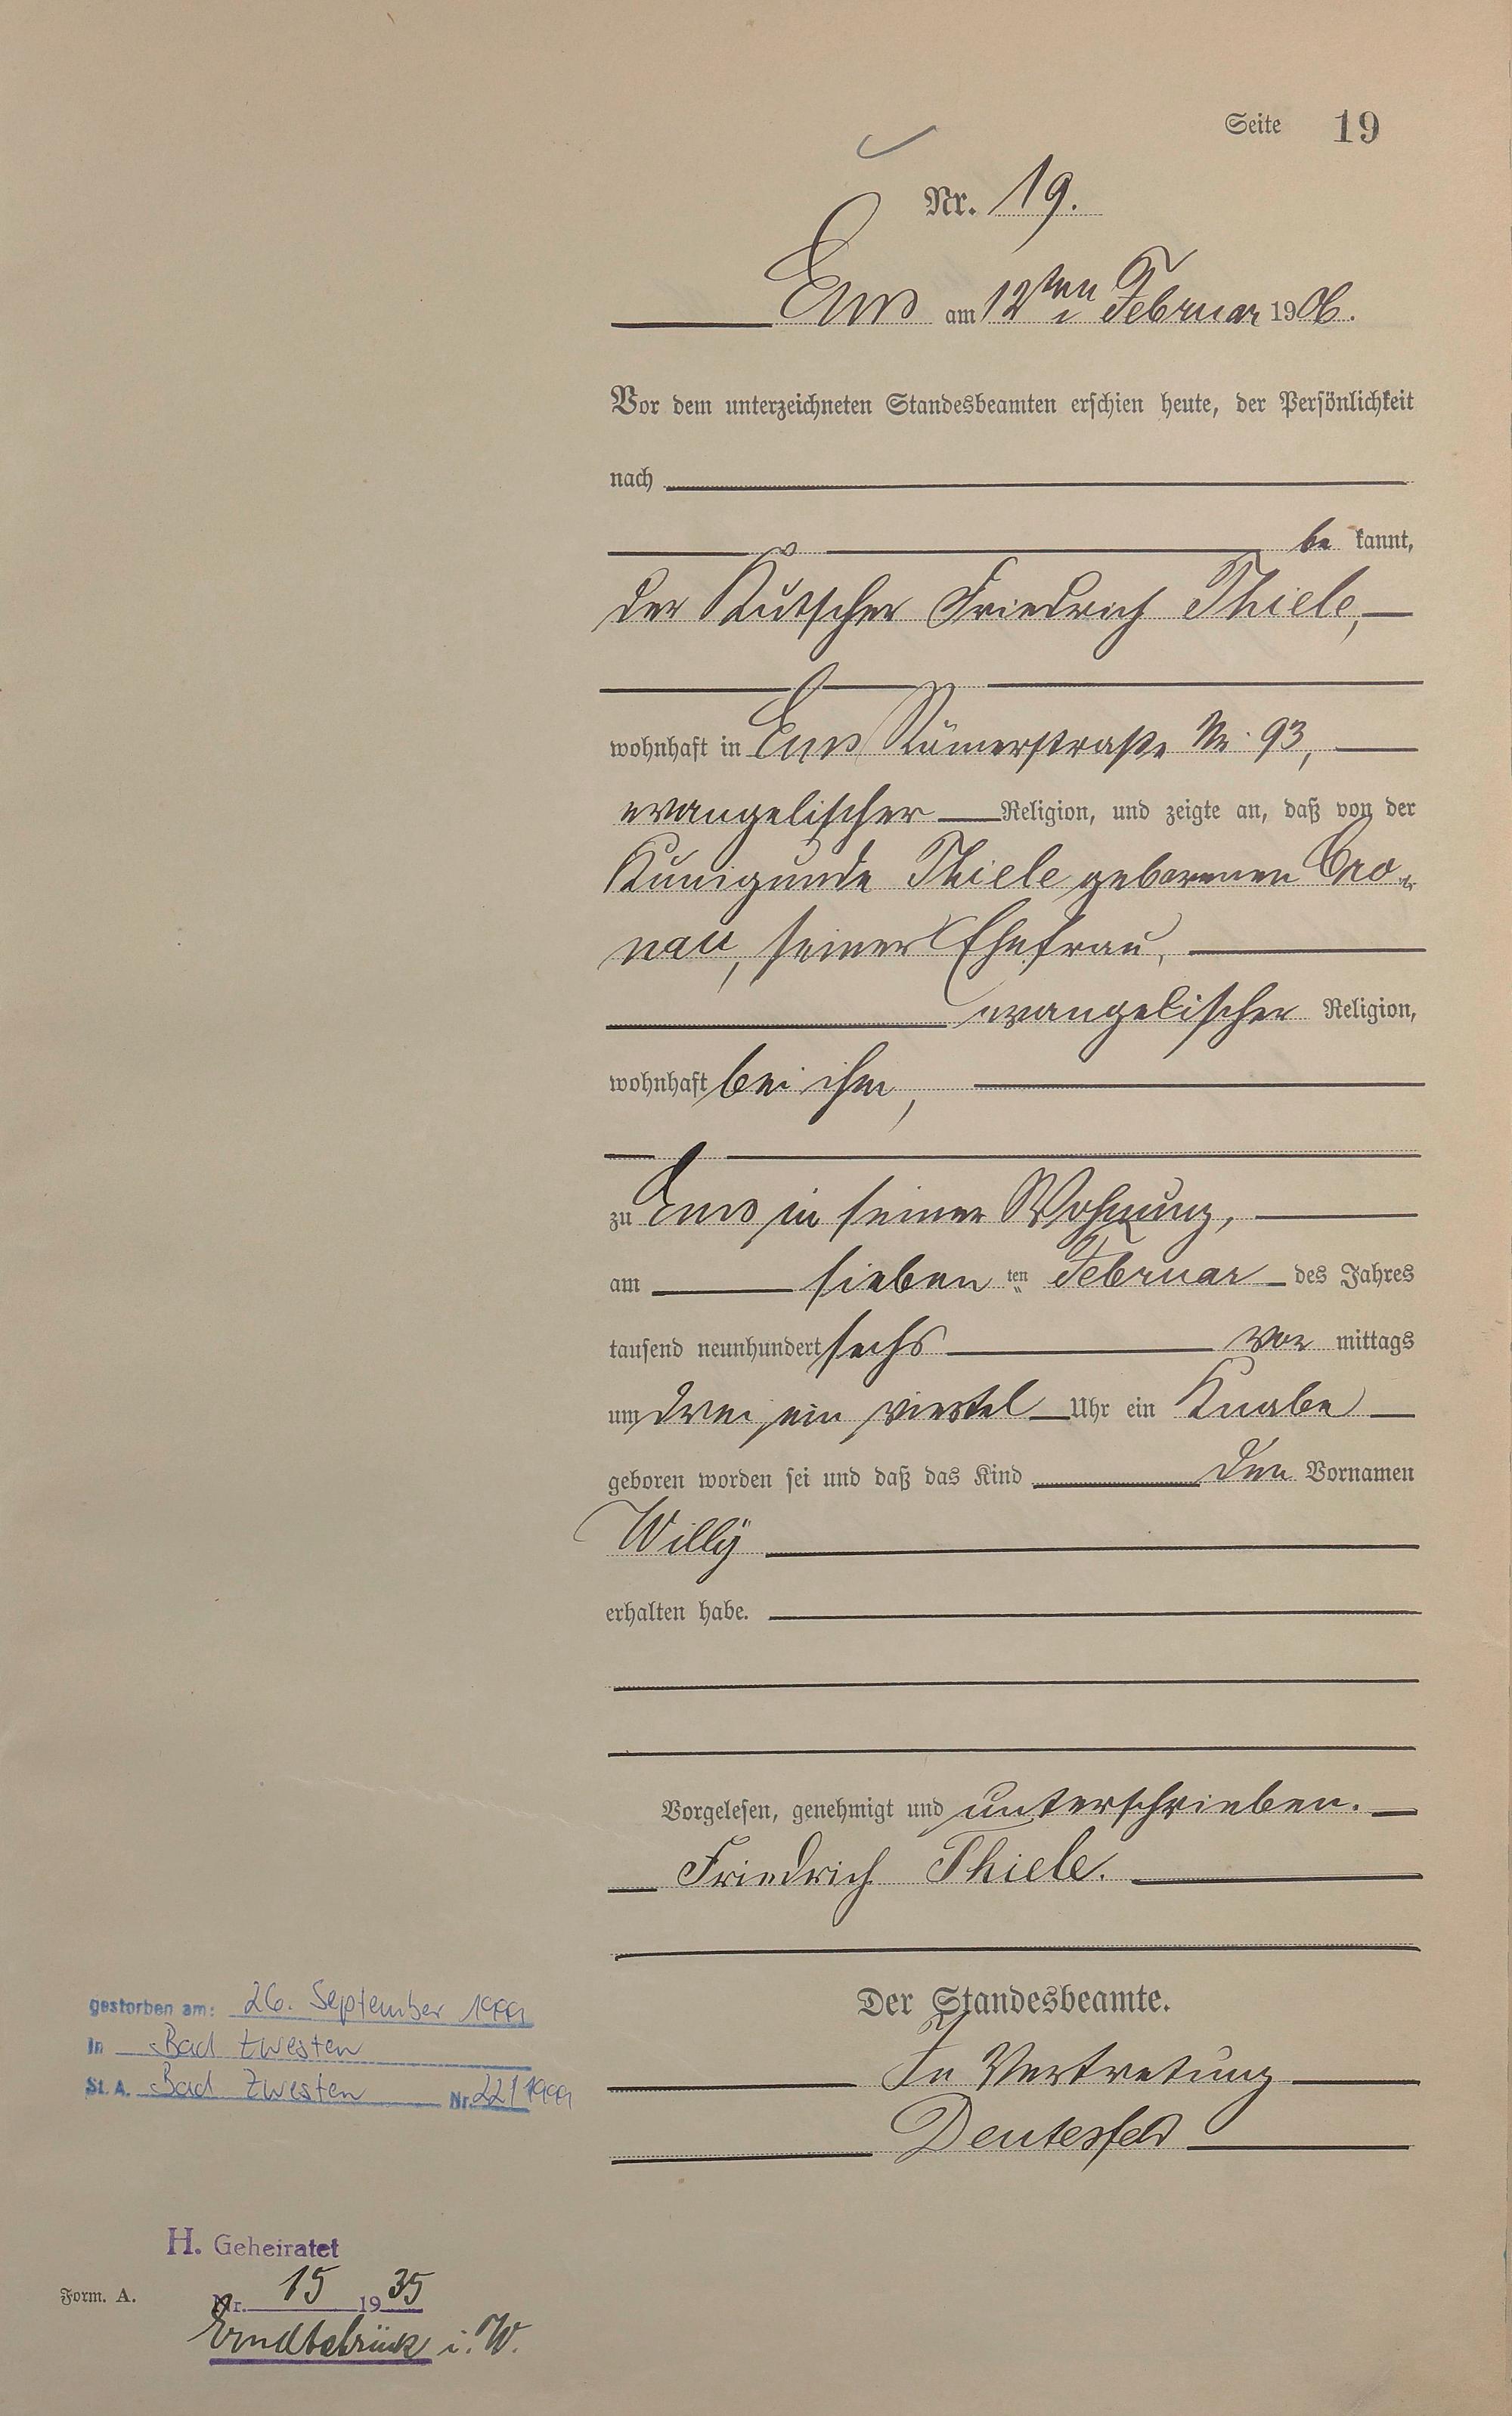 Seite 19
Nr. 19.
Ems am 12ten Februar 1906.
Vor dem unterzeichneten Standesbeamten erschien heute, der Persönlichkeit
nach
be kannt,
der Kutscher Friedrich Thiele,
wohnhaft in Ems Römerstraße Nr. 93,
evangelischer Religion, und zeigte an, daß von der
Kunigunde Thiele geborenen Cro-
nau, seiner Ehefrau,
evangelischer Religion,
wohnhaft bei ihm,
zu Ems in seiner Wohnung,
am sieben ten Februar des Jahres
tausend neunhundert sechs vor mittags
um drei ein viertel Uhr ein Knabe
geboren worden sei und daß das Kind den Vornamen
Willÿ
erhalten habe.
Vorgelesen, genehmigt und unterschrieben.
Friedrich Thiele.
Der Standesbeamte.
In Vertretung
Deutesfeld
gestorben am: 26. September 1991
in Bad Zwesten
St. A. Bad Zwesten Nr. 22/1991
H. Geheiratet
Form. A. Nr. 15 1935
Erndtebrück i. W.